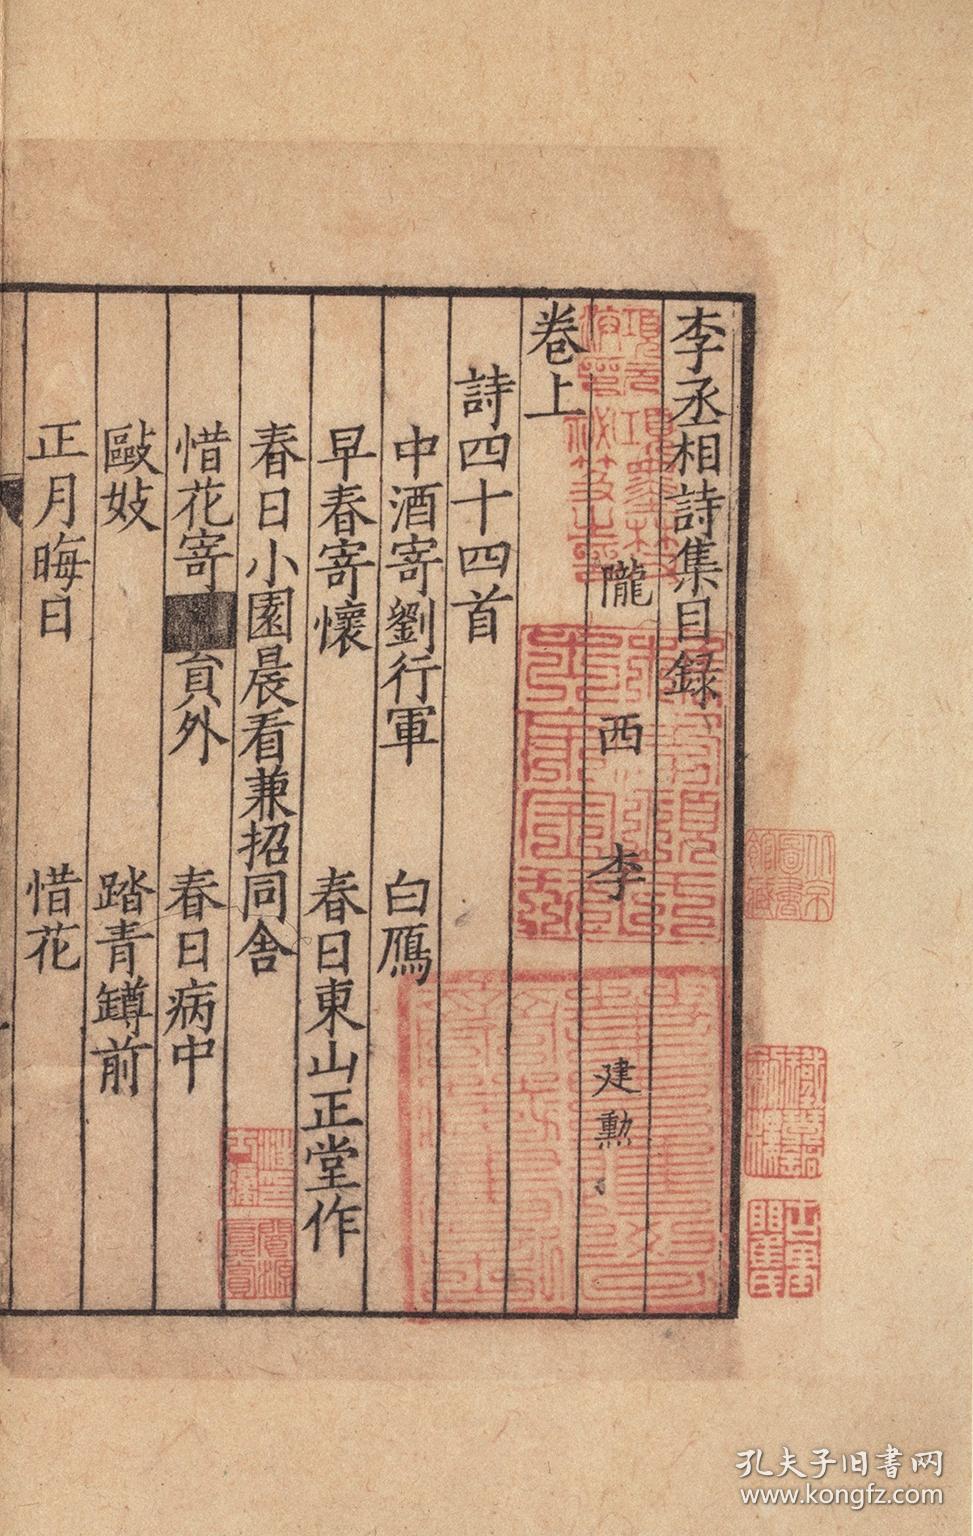 李丞相詩集目録
隴西李建勲
卷上
詩四十四首
中酒寄劉行軍　白鴈
早春寄懷　春日東山正堂作
春日小園晨看兼招同舍
惜花寄■貟外　春日病中
毆妓　踏青罇前
正月晦日　惜花
孔夫子旧書网
www.kongfz.com